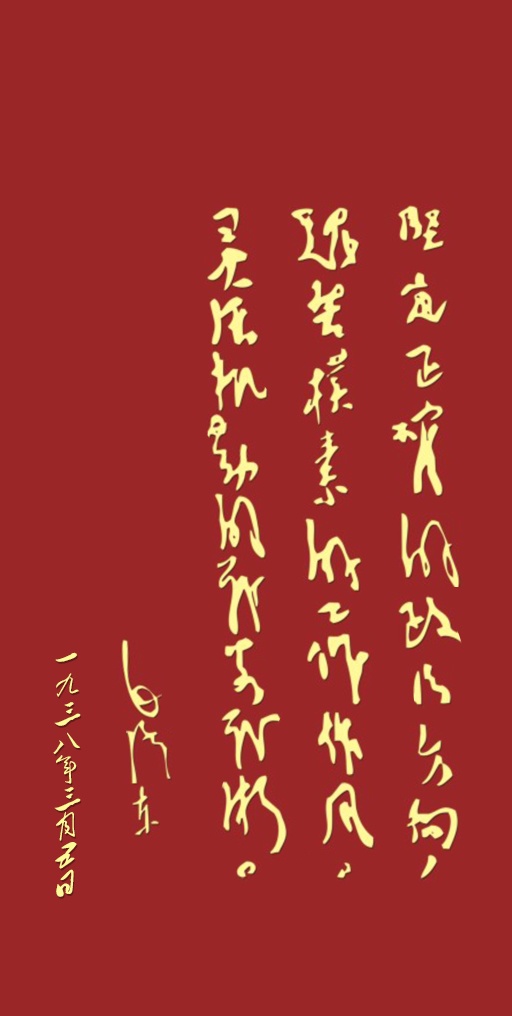 坚定正确的政治方向，
艰苦朴素的工作作风。
灵活机动的战略战术。
毛泽东
一九三八年三月五日